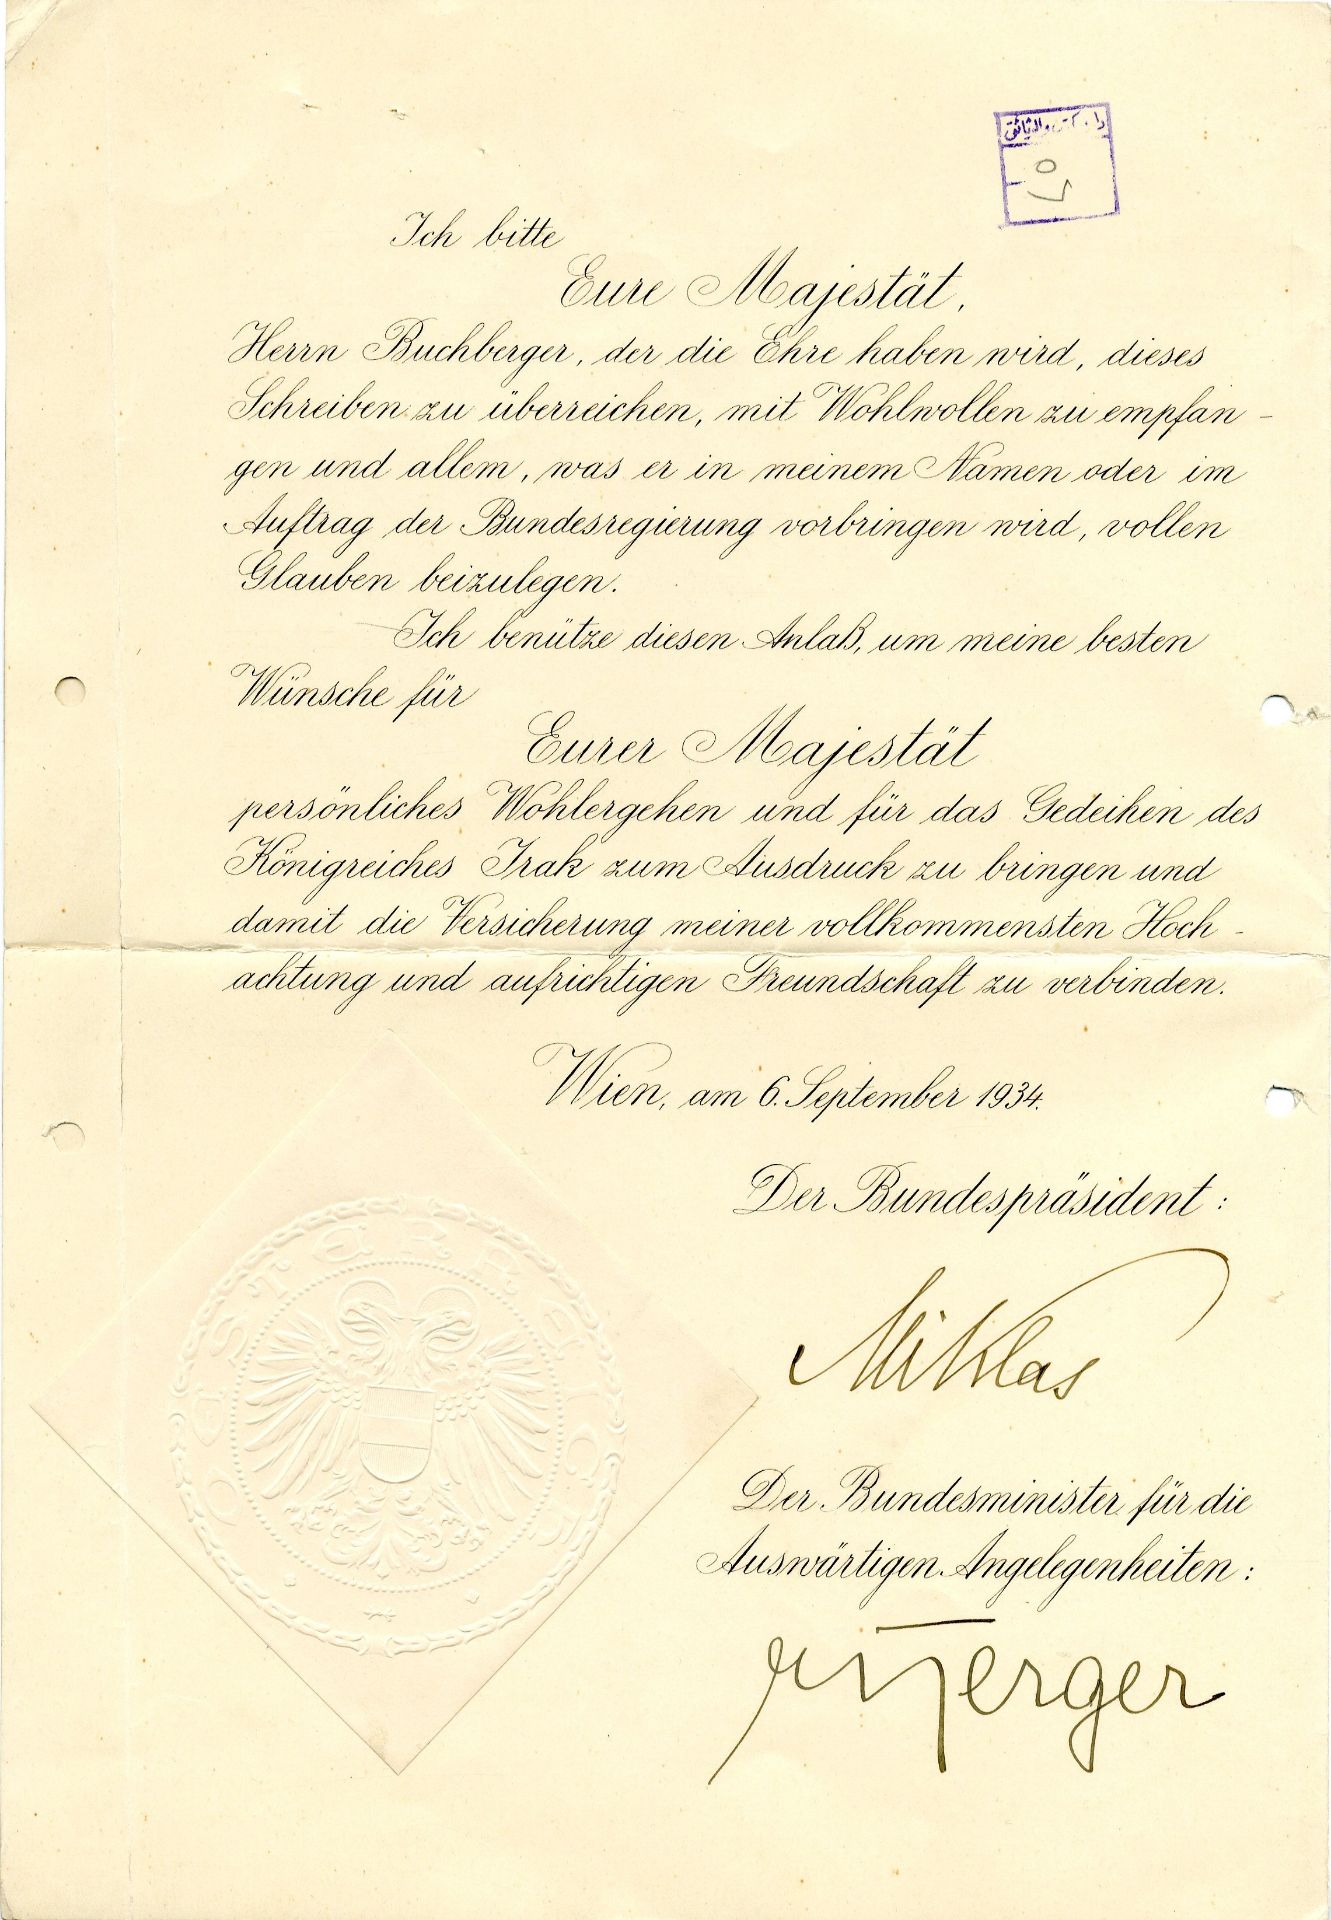 دار الكتب والوثائق
٥٧
Ich bitte
Eure Majestät,
Herrn Buchberger, der die Ehre haben wird, dieses
Schreiben zu überreichen, mit Wohlwollen zu empfan-
gen und allem, was er in meinem Namen oder im
Auftrag der Bundesregierung vorbringen wird, vollen
Glauben beizulegen.
Ich benütze diesen Anlaß, um meine besten
Wünsche für
Eurer Majestät
persönliches Wohlergehen und für das Gedeihen des
Königreiches Irak zum Ausdruck zu bringen und
damit die Versicherung meiner vollkommensten Hoch-
achtung und aufrichtigen Freundschaft zu verbinden.
Wien, am 6. September 1934.
Der Bundespräsident:
Miklas
ÖSTERREICH
Der Bundesminister für die
Auswärtigen Angelegenheiten: